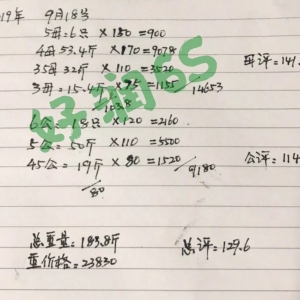 19年 9月18号
5母=6只 ×150=900
4母53.4斤 ×170=9078
35母32斤 ×110=3520
3母=15.4斤 ×75=1155
14653
母评=141.
好润6S
6公=18只 ×120=2160
5公=50斤 ×110=5500
45公=19斤 ×80=1520
9180
公评=114
80
总重量=183.8斤
重价格=23830
总评=129.6